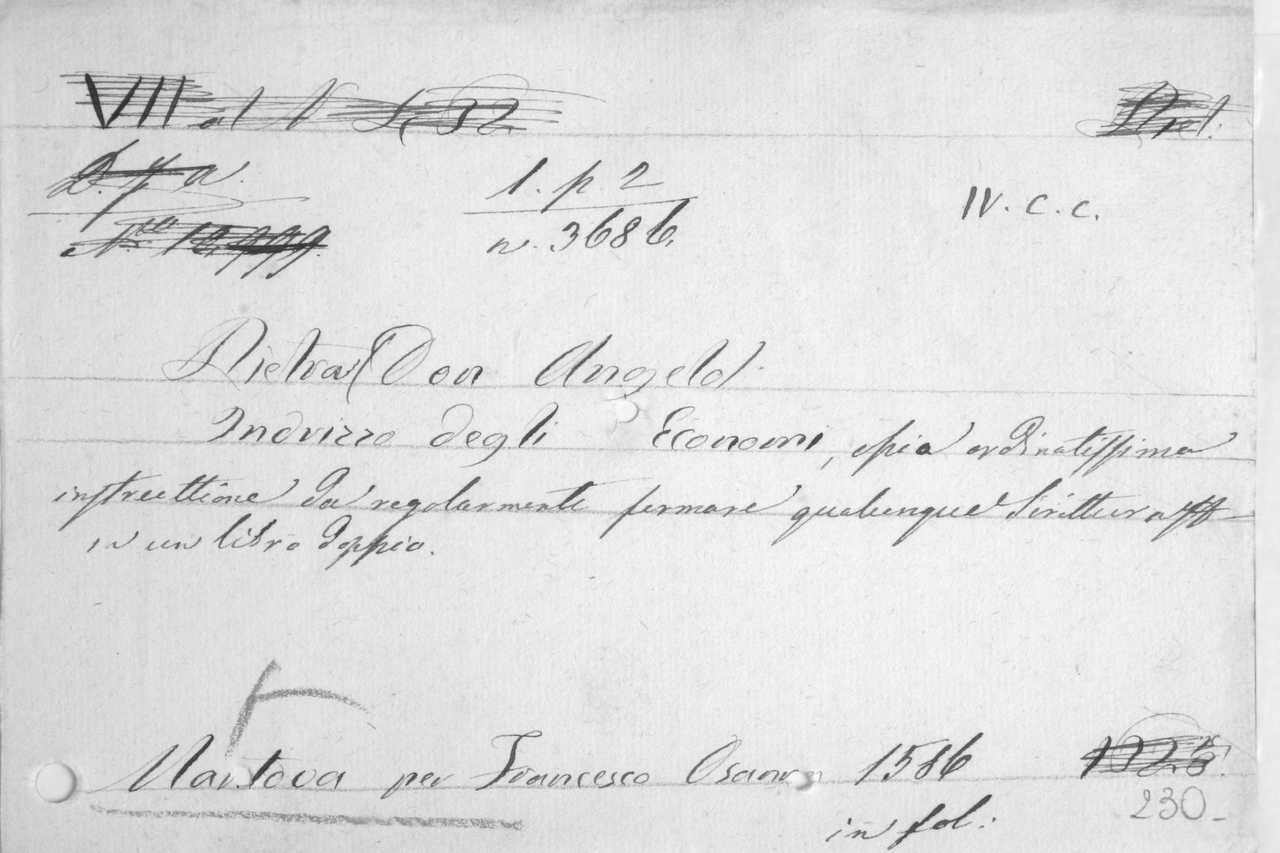 VII al N
1. p 2
n. 3686.
IV. C. C.
Pietra (Don Angelo)
Indrizzo degli Economi, osia ordinatissima
instruttione da regolarmente formare qualunque Scrittura
in un libro doppio.
Mantova per Francesco Osanna 1586
in fol:
230